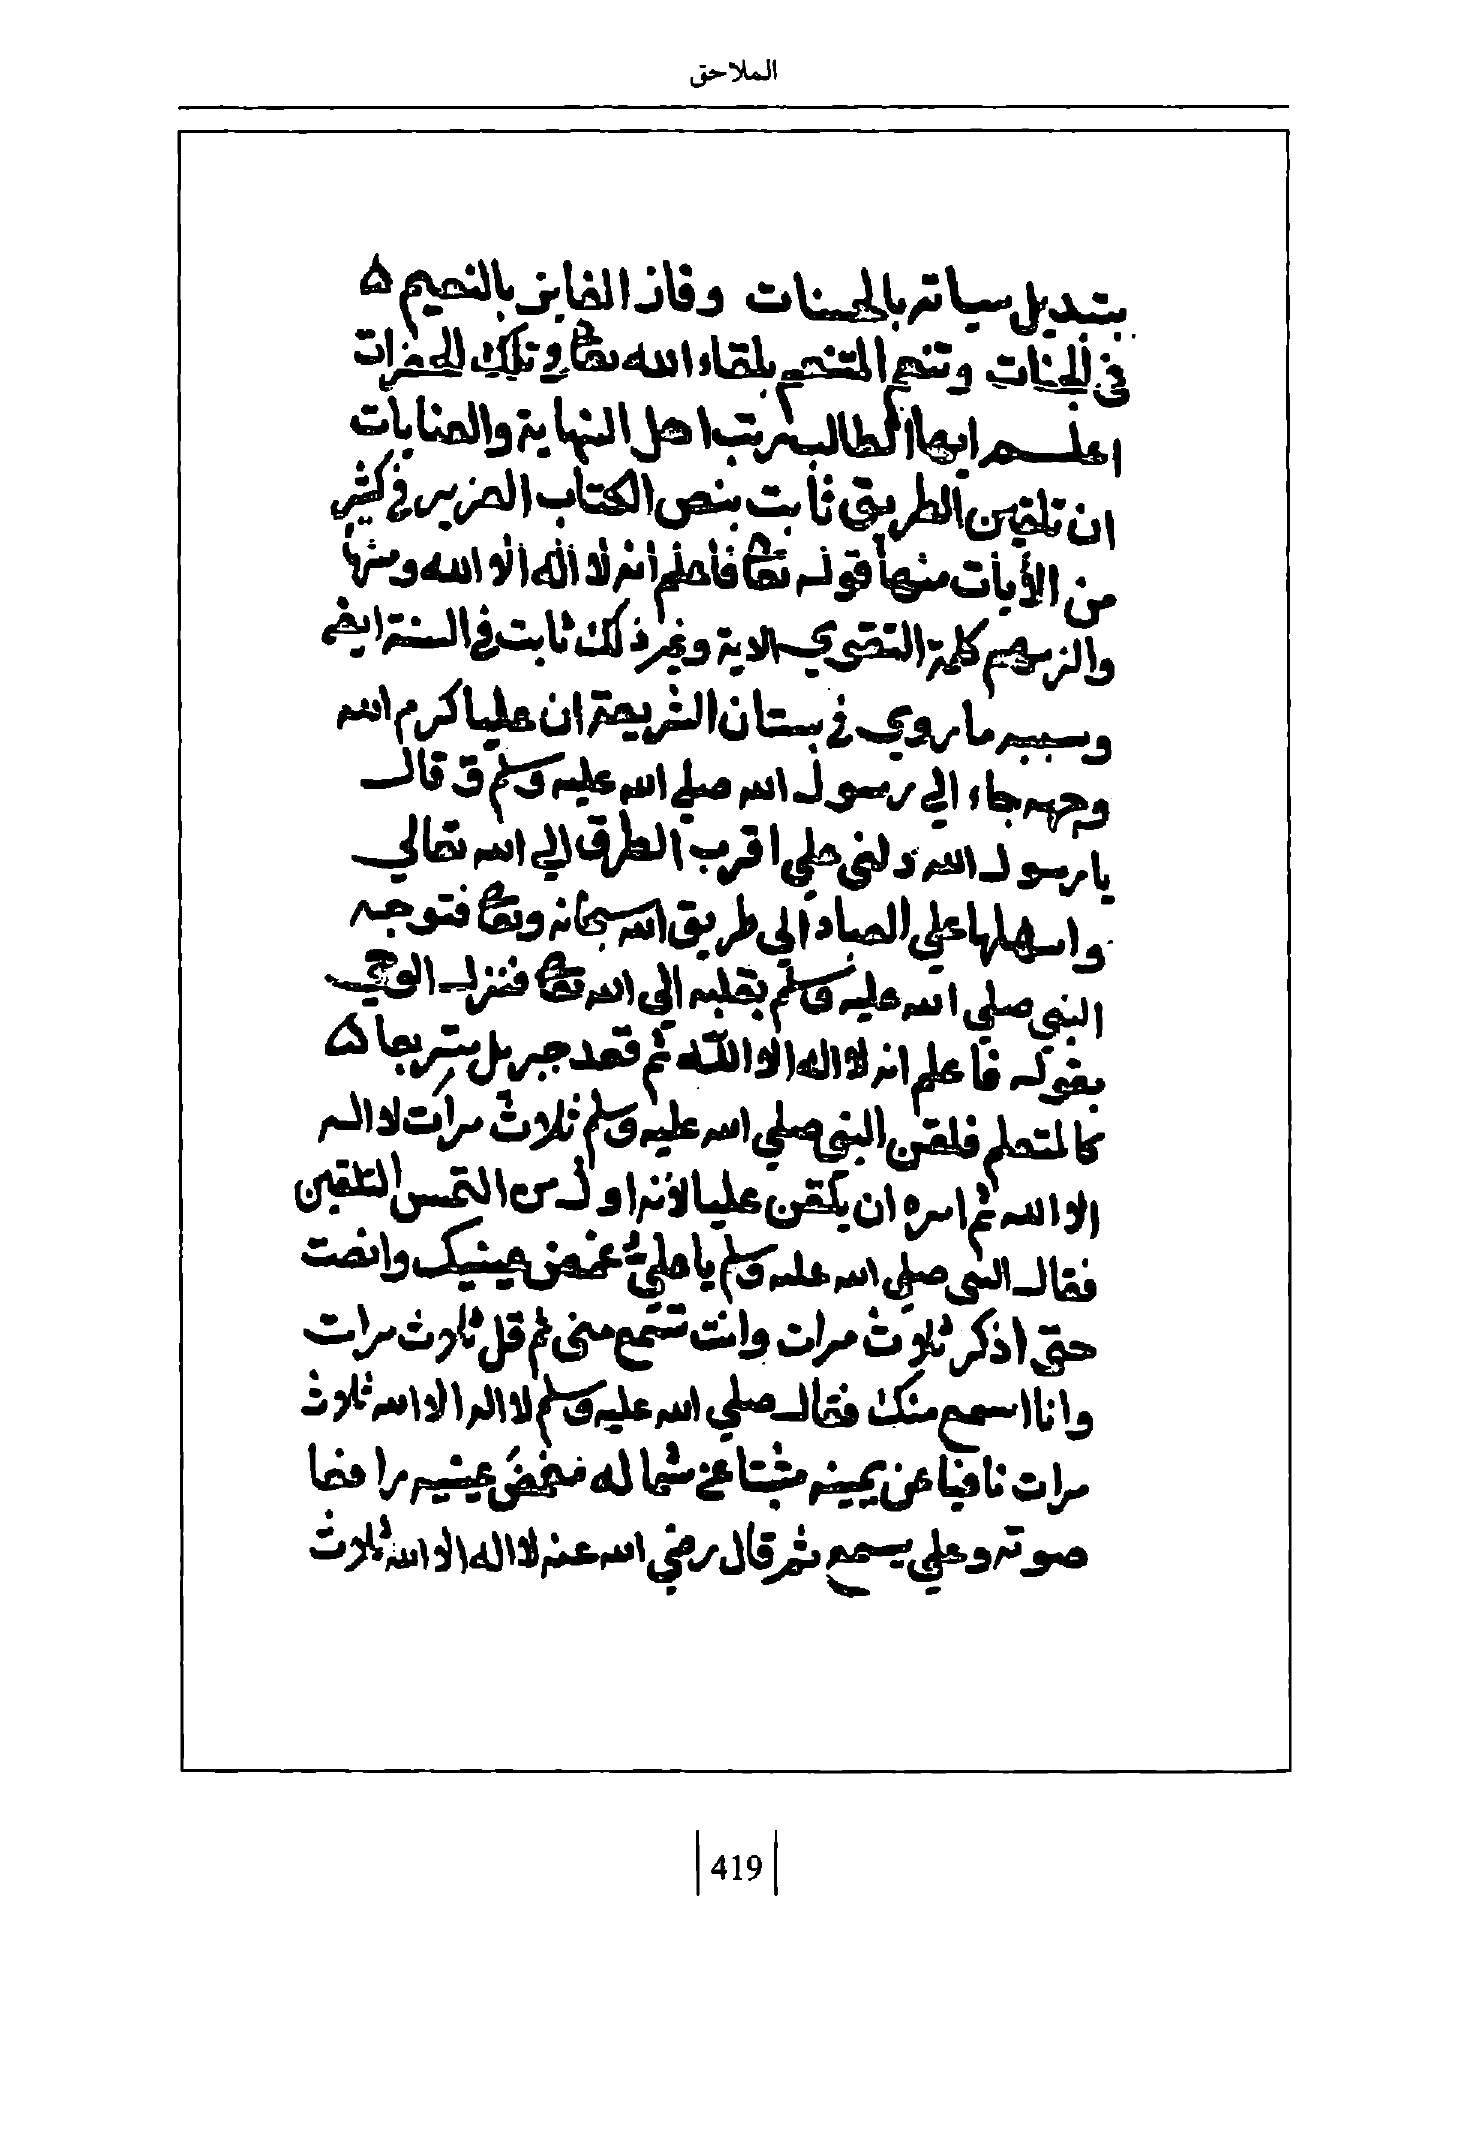 الملاحق
بتبديل سياته بالحسنات وفاز الفايز بالنعيم ه
في الجنات وتنعم المتنعم بلقاء الله تعا وتلك الحضرات
اعلم ايها الطالب رتب اهل النهاية والعنايات
ان تلقين الطريق ثابت بنص الكتاب العزيز في كثير
من الأيات منها قوله تعا فأعلم انه لا اله الا الله ومنها
والزمهم كلمة التقوي الاية وغير ذلك ثابت في السنة ايضا
وسببه ما روي في بستان الشريعة ان عليا كرم الله
وجهه جاء الي رسول الله صلي الله عليه وسلم وقال
يا رسول الله دلني علي اقرب الطرق الي الله تعالي
واسهلها علي العباد الي طريق الله سبحانه وتعا فتوجه
النبي صلي الله عليه وسلم بقلبه الي الله تعا فنزل الوحي
بقوله فاعلم انه لا اله الا الله ثم قعد جبريل بتربعا ه
كالمتعلم فلقن النبي صلي الله عليه وسلم ثلاث مرات لا اله
الا الله ثم امره ان يلقن عليا لأنه اول من التمس التلقين
فقال النبي صلي الله عليه وسلم يا علي غمض عينيك وانصت
حتي اذكر ثلاث مرات وانت تستمع مني ثم قل ثلاث مرات
وانا اسمع منك فقال صلي الله عليه وسلم لا اله الا الله ثلاث
مرات نافيا عن يمينه مثبتا عن شماله مغمض عينيه رافعا
صوته وعلي يسمع ثم قال رضي الله عنه لا اله الا الله ثلاث
419